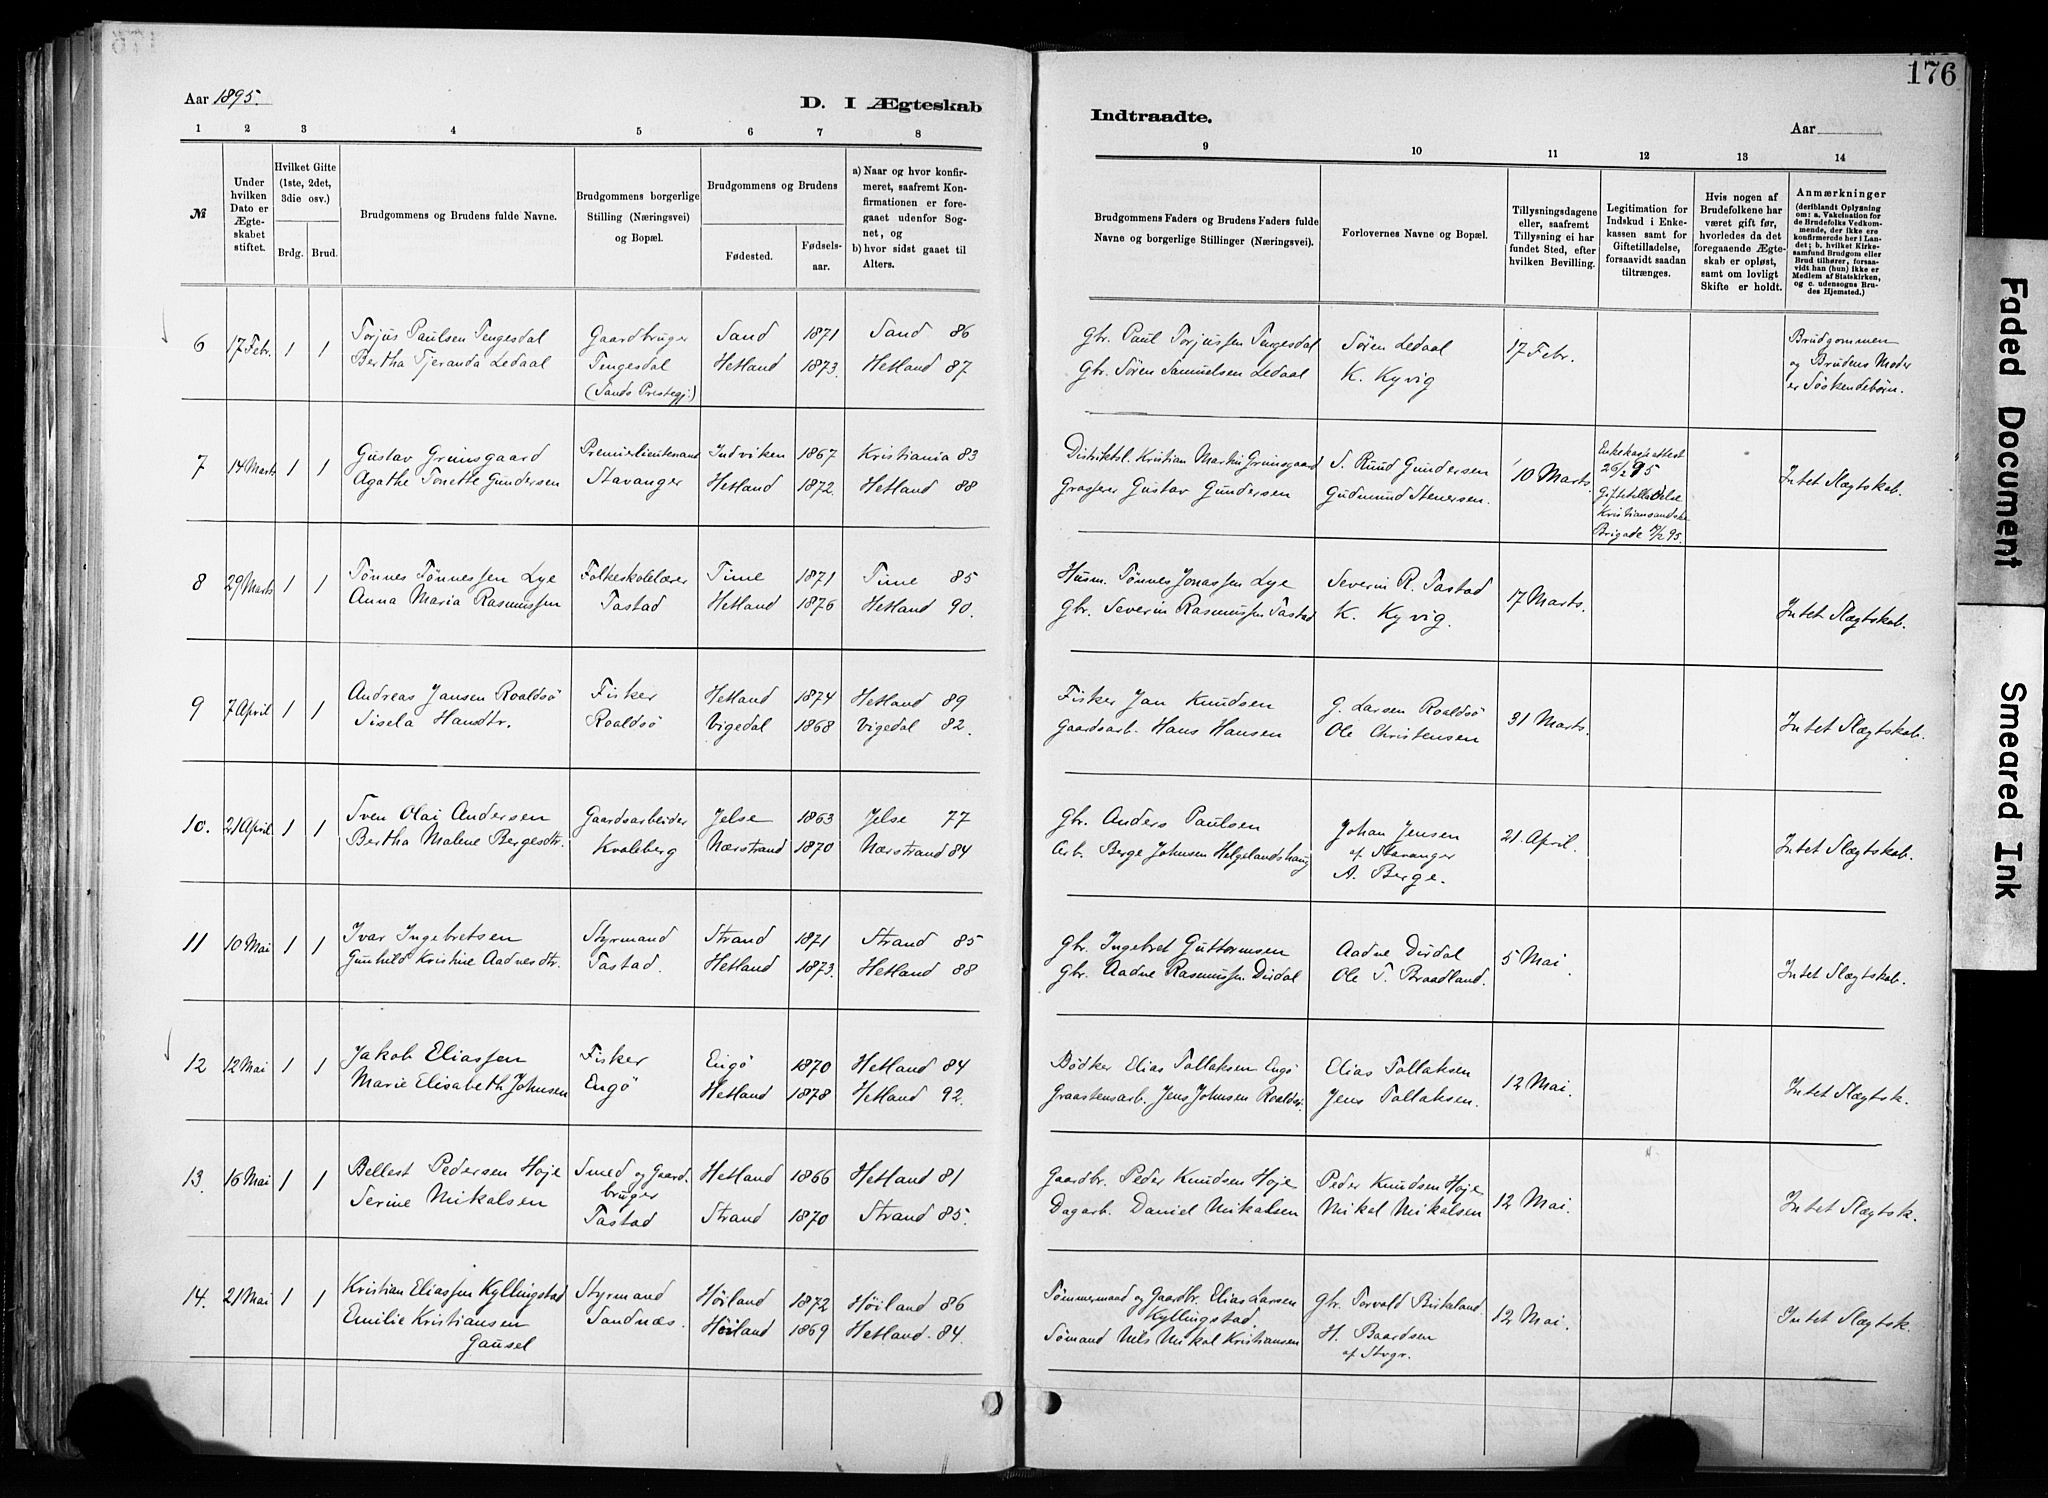 176
Aar 1895.
D. I Ægteskab
Indtraadte.
Aar
1 2 3 4 5 6 7 8
9 10 11 12 13 14
№
Under hvilken Dato er Ægteskabet stiftet.
Hvilket Gifte (1ste, 2det, 3die osv.)
Brdg. Brud.
Brudgommens og Brudens fulde Navne.
Brudgommens borgerlige Stilling (Næringsvei) og Bopæl.
Brudgommens og Brudens
Fødested.
Fødselsaar.
a) Naar og hvor konfirmeret, saafremt Konfirmationen er foregaaet udenfor Sognet, og
b) hvor sidst gaaet til Alters.
Brudgommens Faders og Brudens Faders fulde Navne og borgerlige Stillinger (Næringsvei).
Forlovernes Navne og Bopæl.
Tillysningsdagene eller, saafremt Tillysning ei har fundet Sted, efter hvilken Bevilling.
Legitimation for Indskud i Enkekassen samt for Giftetilladelse, forsaavidt saadan tiltrænges.
Hvis nogen af Brudefolkene har været gift før, hvorledes da det foregaaende Ægteskab er opløst, samt om lovligt Skifte er holdt.
Anmærkninger
(deriblandt Oplysning om: a. Vakcination for de Brudefolks Vedkommende, der ikke ere konfirmerede her i Landet; b. hvilket Kirkesamfund Brudgom eller Brud tilhører, forsaavidt han (hun) ikke er Medlem af Statskirken, og c. udensogns Brudes Hjemsted.)
6 17 Febr. 1 1 Torjus Paulsen Tengesdal Gaardbruger Sand 1871 Sand 86
Bertha Tjeranda Ledaal Tengesdal Hetland 1873. Hetland 87
(Sands Prestegj:)
Gbr. Paul Torjussen Tengesdal Søren Ledaal 17 Febr. Brudgommen
Gbr. Søren Samuelsen Ledaal K. Kyvig og Brudens Moder
er Søskendebørn.
7 14 Marts 1 1 Gustav Grimsgaard Premierlieutenand Indviken 1867 Kristiania 83
Agathe Tonette Gundersen Stavanger Hetland 1872. Hetland 88
Distriktsl. Kristian Martin Grimsgaard S. Ruud Gundersen 10 Marts. Enkekasseattest
Grosserer Gustav Gundersen Gudmund Stenersen. 26/2 95 Intet Slægtskab.
Giftetilladelse
Kristiansandske
Brigade 19/2 95.
8 29 Marts 1 1 Tønnes Tønnessen Lye Folkeskolelærer Time 1871 Time 85
Anna Maria Rasmussen Tastad Hetland 1876 Hetland 90.
Husm. Tønnes Jonassen Lye Severin R. Tastad 17 Marts.
Gbr. Severin Rasmussen Tastad K. Kyvig. Intet Slægtskab.
9 7 April 1 1 Andreas Jansen Roaldsø Fisker Hetland 1874 Hetland 89
Sisela Hansdtr. Roaldsø Vigedal 1868 Vigedal 82.
Fisker Jan Knudsen G. Larsen Roaldsø 31 Marts.
Gaardsarb. Hans Hansen Ole Christensen Intet Slægtskab.
10. 21 April 1 1 Sven Olai Andersen Gaardsarbeider Jelse 1863 Jelse 77
Bertha Malene Bergesdtr. Kvaleberg Nærstrand 1870 Nærstrand 84
Gbr. Anders Paulsen Johan Jensen 21. April.
Arb. Berge Johnsen Helgelandshaug af Stavanger Intet Slægtskab.
A. Berge.
11 10 Mai 1 1 Ivar Ingebretsen Styrmand Strand 1871 Strand 85
Gunhild Kristine Aadnesdtr. Tastad. Hetland 1873. Hetland 88
Gbr. Ingebret Guttormsen Aadne Dirdal 5 Mai
Gbr. Aadne Rasmussen Dirdal Ole T. Braadland. Intet Slægtskab.
12 12 Mai 1 1 Jakob Eliassen Fisker Engø 1870 Hetland 84
Marie Elisabeth Johnsen Engø Hetland 1878 Hetland 92.
Bødker Elias Tollaksen Engø Elias Tollaksen 12 Mai.
Graastensarb. Jens Johnsen Roaldsø. Jens Tollaksen. Intet Slægtsk.
13. 16 Mai 1 1 Bellest Pedersen Høje Smed og Gaard- Hetland 1866 Hetland 81
Serine Mikalsen bruger
Tastad Strand 1870 Strand 85.
Gaardbr. Peder Knudsen Høje Peder Knudsen Høje 12 Mai.
Dagarb. Daniel Mikalsen Mikal Mikalsen Intet Slægtsk.
14. 21 Mai 1 1 Kristian Eliassen Kyllingstad Styrmand Høiland 1872 Høiland 86
Emilie Kristiansen Sandnæs. Høiland 1869 Hetland 84
Gausel
Tømmermand og Gaardbr. Elias Larsen Gbr. Torvald Birkeland 12 Mai.
Kyllingstad. H. Baardsen Intet Slægtsk.
Sømand Nils Mikal Kristiansen af Stvgr.
Faded Document
Smeared Ink